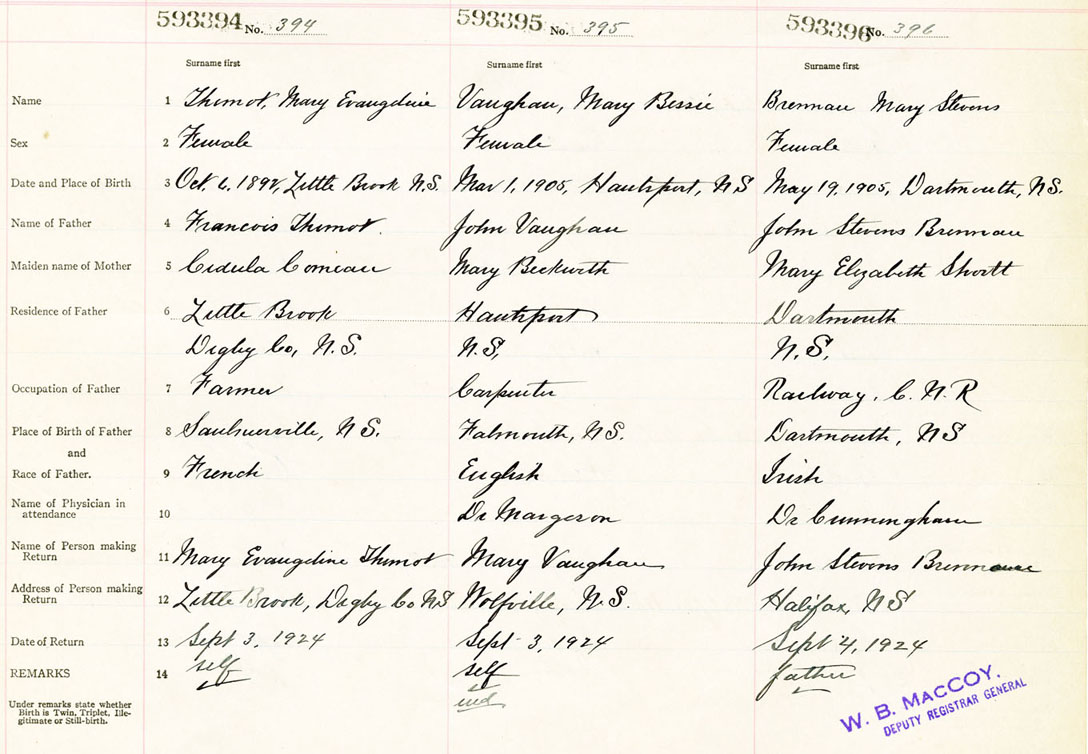 593394 No. 394 593395 No. 395 593396 No. 396
Surname first Surname first Surname first
Name 1 Thimot, Mary Evangeline Vaughan, Mary Bessie Brennan Mary Stevens
Sex 2 Female Female Female
Date and Place of Birth 3 Oct. 6, Little Brook N.S. Mar 1, 1905, Hantsport, N.S May 19, 1905, Dartmouth, N.S.
Name of Father 4 Francois Thimot. John Vaughan John Stevens Brennan
Maiden name of Mother 5 Comeau Mary Beckwith Mary Elizabeth Shortt
Residence of Father 6 Little Brook Hantsport Dartmouth
Digby Co, N.S. N.S. N.S.
Occupation of Father 7 Farmer Carpenter Railway. C.N.R
Place of Birth of Father 8 Saulnierville, N S. Falmouth, N.S. Dartmouth, NS
and
Race of Father. 9 French English Irish
Name of Physician in
attendance 10 Dr Margeson Dr Cunningham
Name of Person making
Return 11 Mary Evangeline Thimot Mary Vaughan John Stevens Brennan
Address of Person making
Return 12 Little Brook, Digby Co N S Wolfville, N.S. Halifax, NS
Date of Return 13 Sept 3, 1924 Sept 3, 1924 Sept 4, 1924
REMARKS 14 self self father
Under remarks state whether
Birth is Twin, Triplet, Ille-
gitimate or Still-birth.
W. B. MACCOY.
DEPUTY REGISTRAR GENERAL